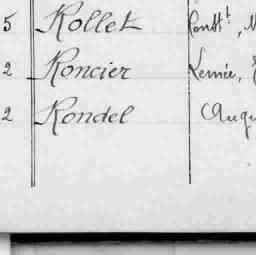 5 Rollet Const.t, M
2 Roncier
2 Rondel Augu